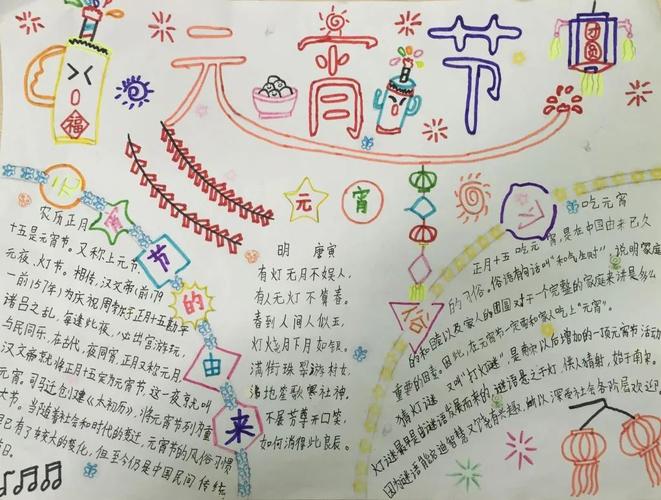 元宵节
团圆
福
元宵
元宵节的由来
农历正月
十五是元宵节。又称上元节、
元夜、灯节。相传,汉文帝(前179
一前157年)为庆祝周勃于正月十五勘平
诸吕之乱,每逢此夜,必出宫游玩,
与民同乐,在古代,夜同宵,正月又称元月,
汉文帝就将正月十五定为元宵节,这一夜就叫
元宵。司马迁创建《太初历》,将元宵节列为重
大节。当随着社会和时代的变迁,元宵节的风俗习惯
早已有了较大的变化,但至今仍是中国民间传统
节日。
明 唐寅
有灯无月不娱人,
有月无灯不算春。
春到人间人似玉,
灯烧月下月如银。
满街珠翠游村女,
沸地笙歌赛社神。
不展芳尊开口笑,
如何消得此良辰。
吃元宵
正月十五吃元宵,是在中国由来已久
的习俗。俗语有句话叫"和气生财",说明家庭
的和睦以及家人的团圆对于一个完整的家庭来讲是多么
重要的因素。因此,在元宵节一定要和家人吃上"元宵"。
猜灯谜 又叫"打灯谜"是南宋以后增加的一项元宵节活动
灯谜最早是由谜语发展而来的,谜语悬之于灯,供人猜射,始于南宋。
因为谜语能启迪智慧又饶有兴趣,所以深受社会各阶层欢迎。